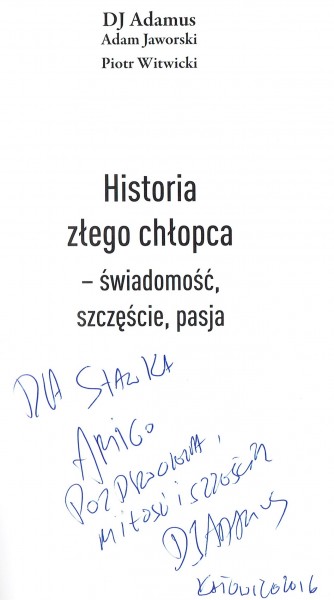 DJ Adamus
Adam Jaworski
Piotr Witwicki
Historia
złego chłopca
– świadomość,
szczęście, pasja
DLA STAWKA
AMIGO
POZDROWIENIA,
MIŁOŚCI I
DJ ADAMUS
KATOWICE 2016